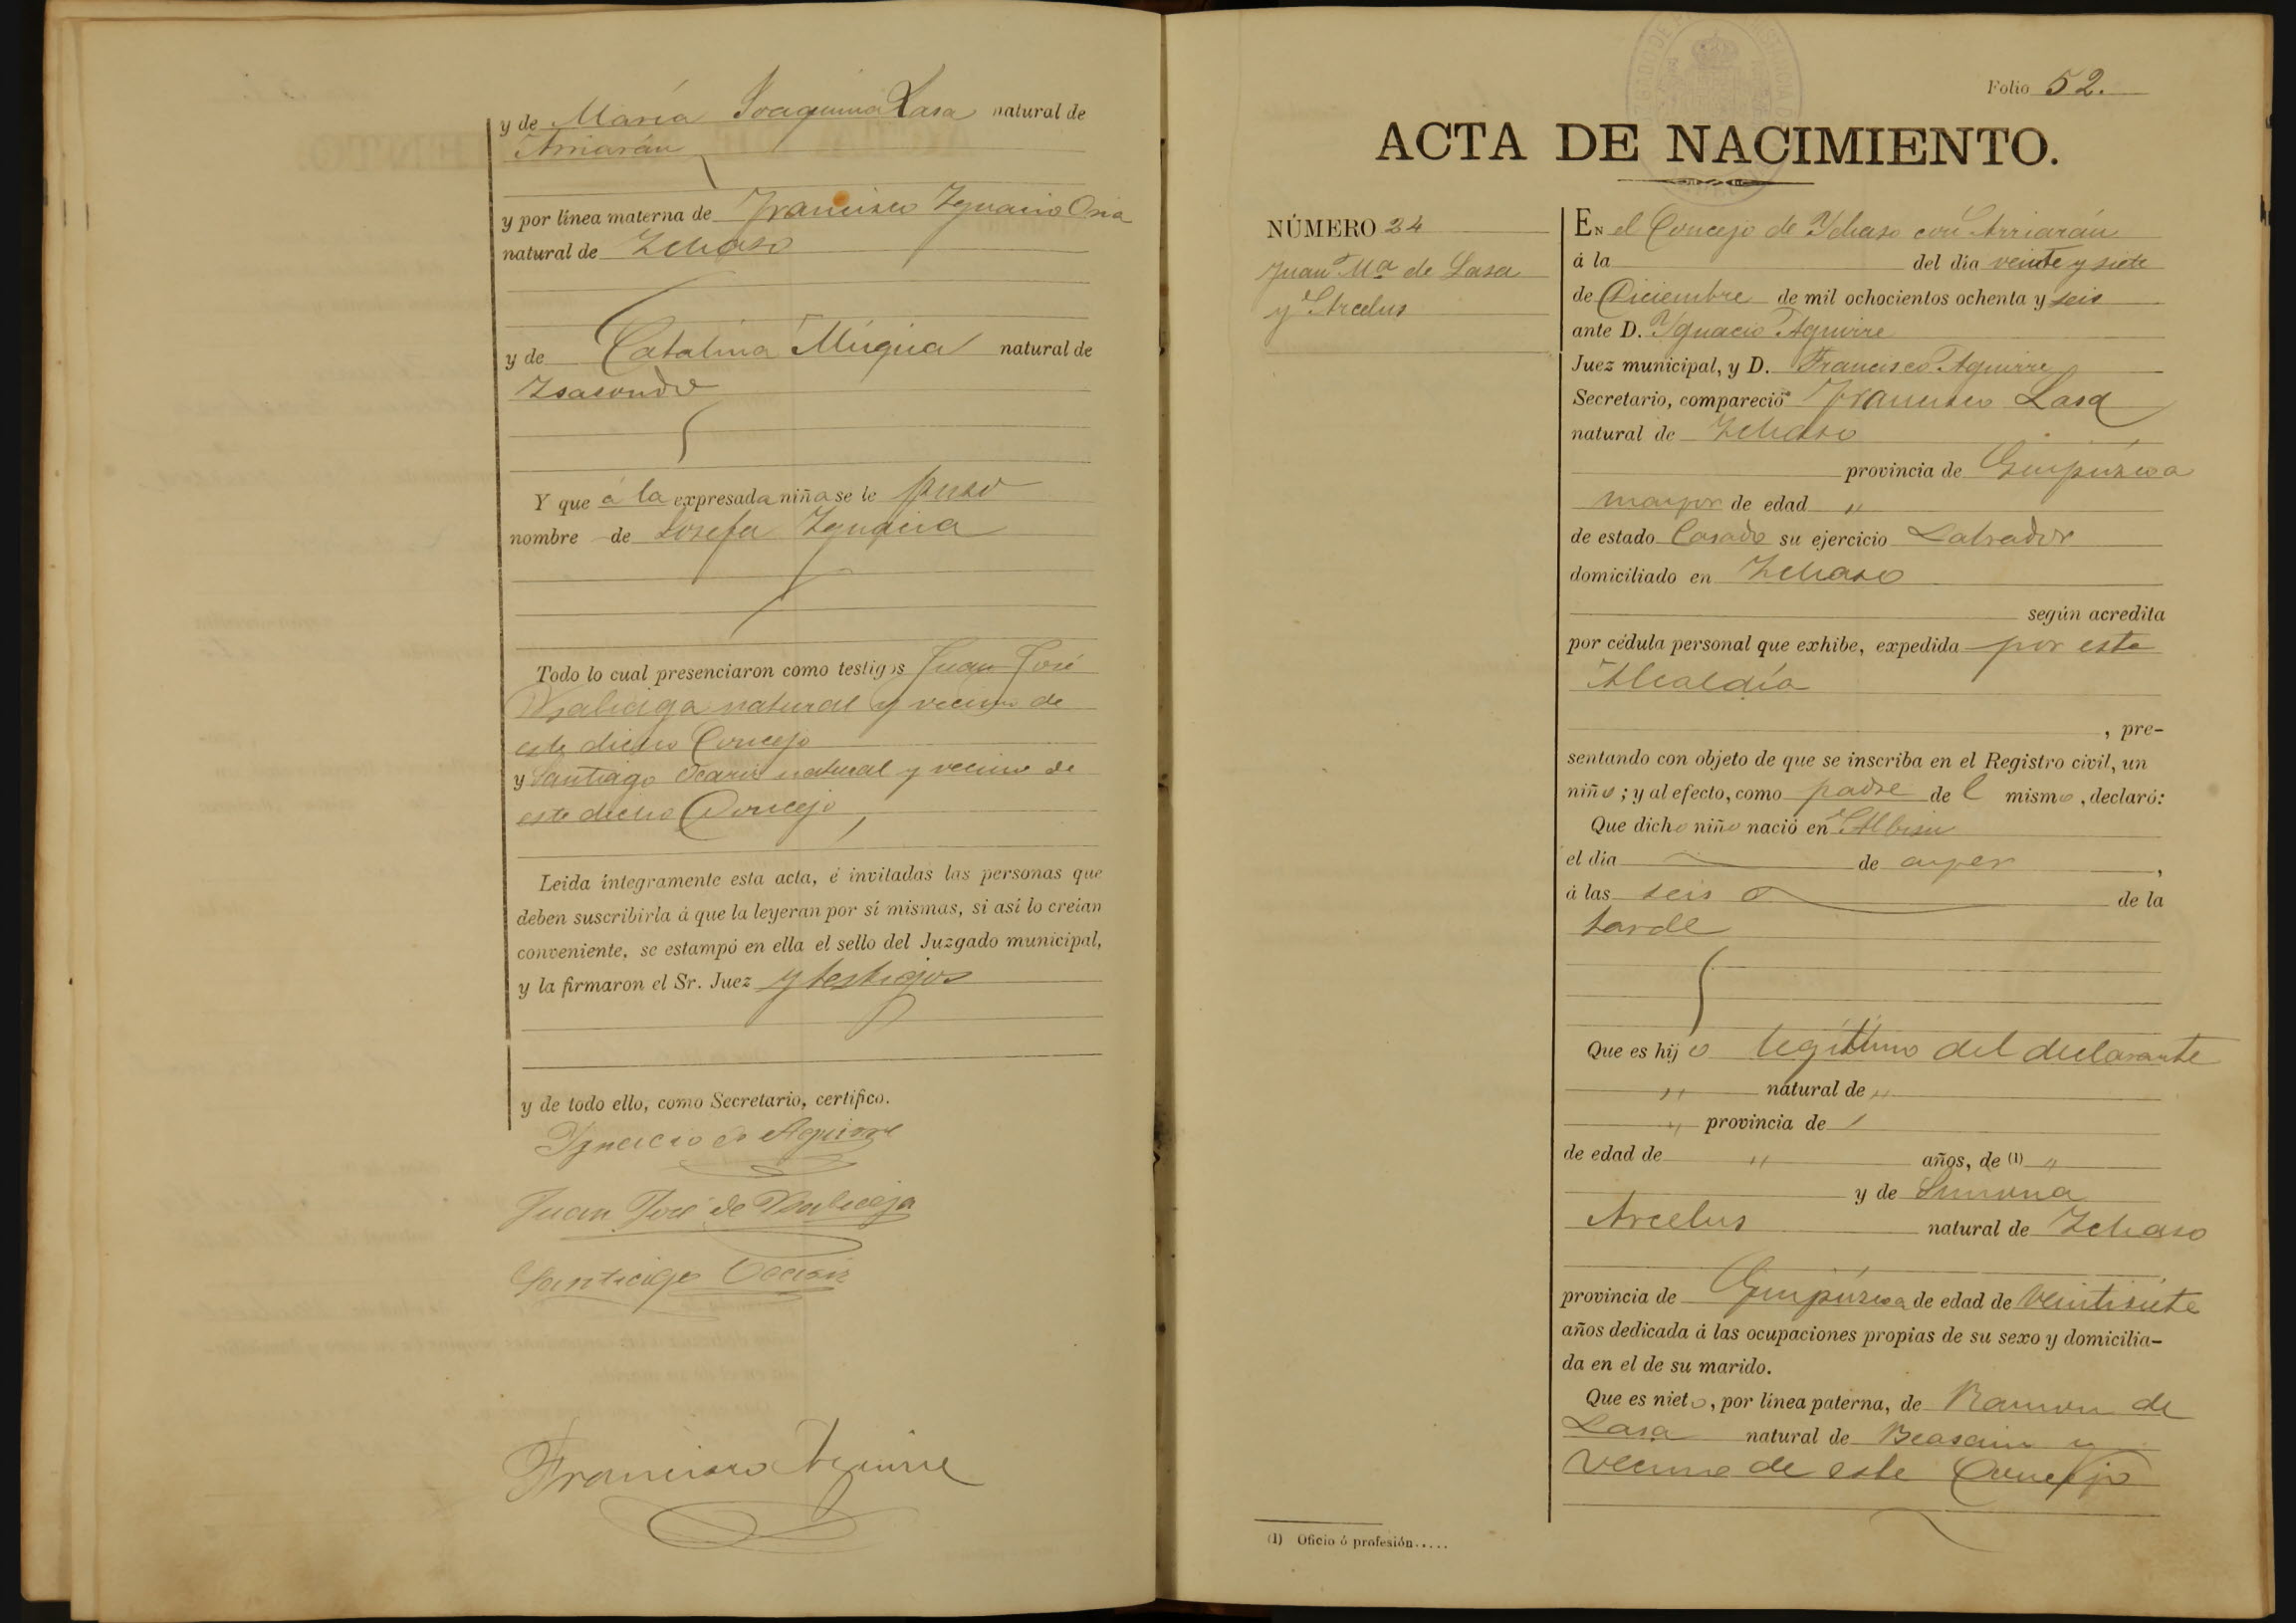 y de María Joaquina Lasa natural de
Arriarán
y por línea materna de Francisco Ygnacio Oria
natural de Ychaso
y de Catalina Múgica natural de
Ysasondo
Y que á la expresada niña se le puso
nombre de Josefa Ygnacia
Todo lo cual presenciaron como testigos Juan José
natural y vecino de
este dicho Concejo
y Santiago Ocariz natural y vecino de
este dicho Concejo
Leida íntegramente esta acta, é invitadas las personas que
deben suscribirla á que la leyeran por sí mismas, si así lo creían
conveniente, se estampó en ella el sello del Juzgado municipal,
y la firmaron el Sr. Juez y testigos
y de todo ello, como Secretario, certifico.
Ygnacio de Aguirre
Juan José de
Santiago Ocariz
Francisco Aguirre
Folio 52.
ACTA DE NACIMIENTO.
NÚMERO 24
Juan Mª de Lasa
y Arcelus
En el Concejo de Ychaso con Arriarán
á la del dia veinte y siete
de Diciembre de mil ochocientos ochenta y seis
ante D. Ygnacio Aguirre
Juez municipal, y D. Francisco Aguirre
Secretario, compareció Francisco Lasa
natural de Ychaso
provincia de Guipúzcoa
mayor de edad "
de estado Casado su ejercicio Labrador
domiciliado en Ychaso
según acredita
por cédula personal que exhibe, expedida por esta
Alcaldía
, pre-
sentando con objeto de que se inscriba en el Registro civil, un
niño; y al efecto, como padre de l mismo, declaró:
Que dicho niño nació en Albisu
el dia de ayer ,
á las seis de la
tarde
Que es hijo legítimo del declarante
" natural de "
" provincia de
de edad de " años, de (1) "
y de Simona
Arcelus natural de Ychaso
provincia de Guipúzcoa de edad de veintisiete
años dedicada á las ocupaciones propias de su sexo y domicilia-
da en el de su marido.
Que es nieto, por línea paterna, de Ramon de
Lasa natural de Beasain y
vecino de este Concejo
(1) Oficio ó profesión.....